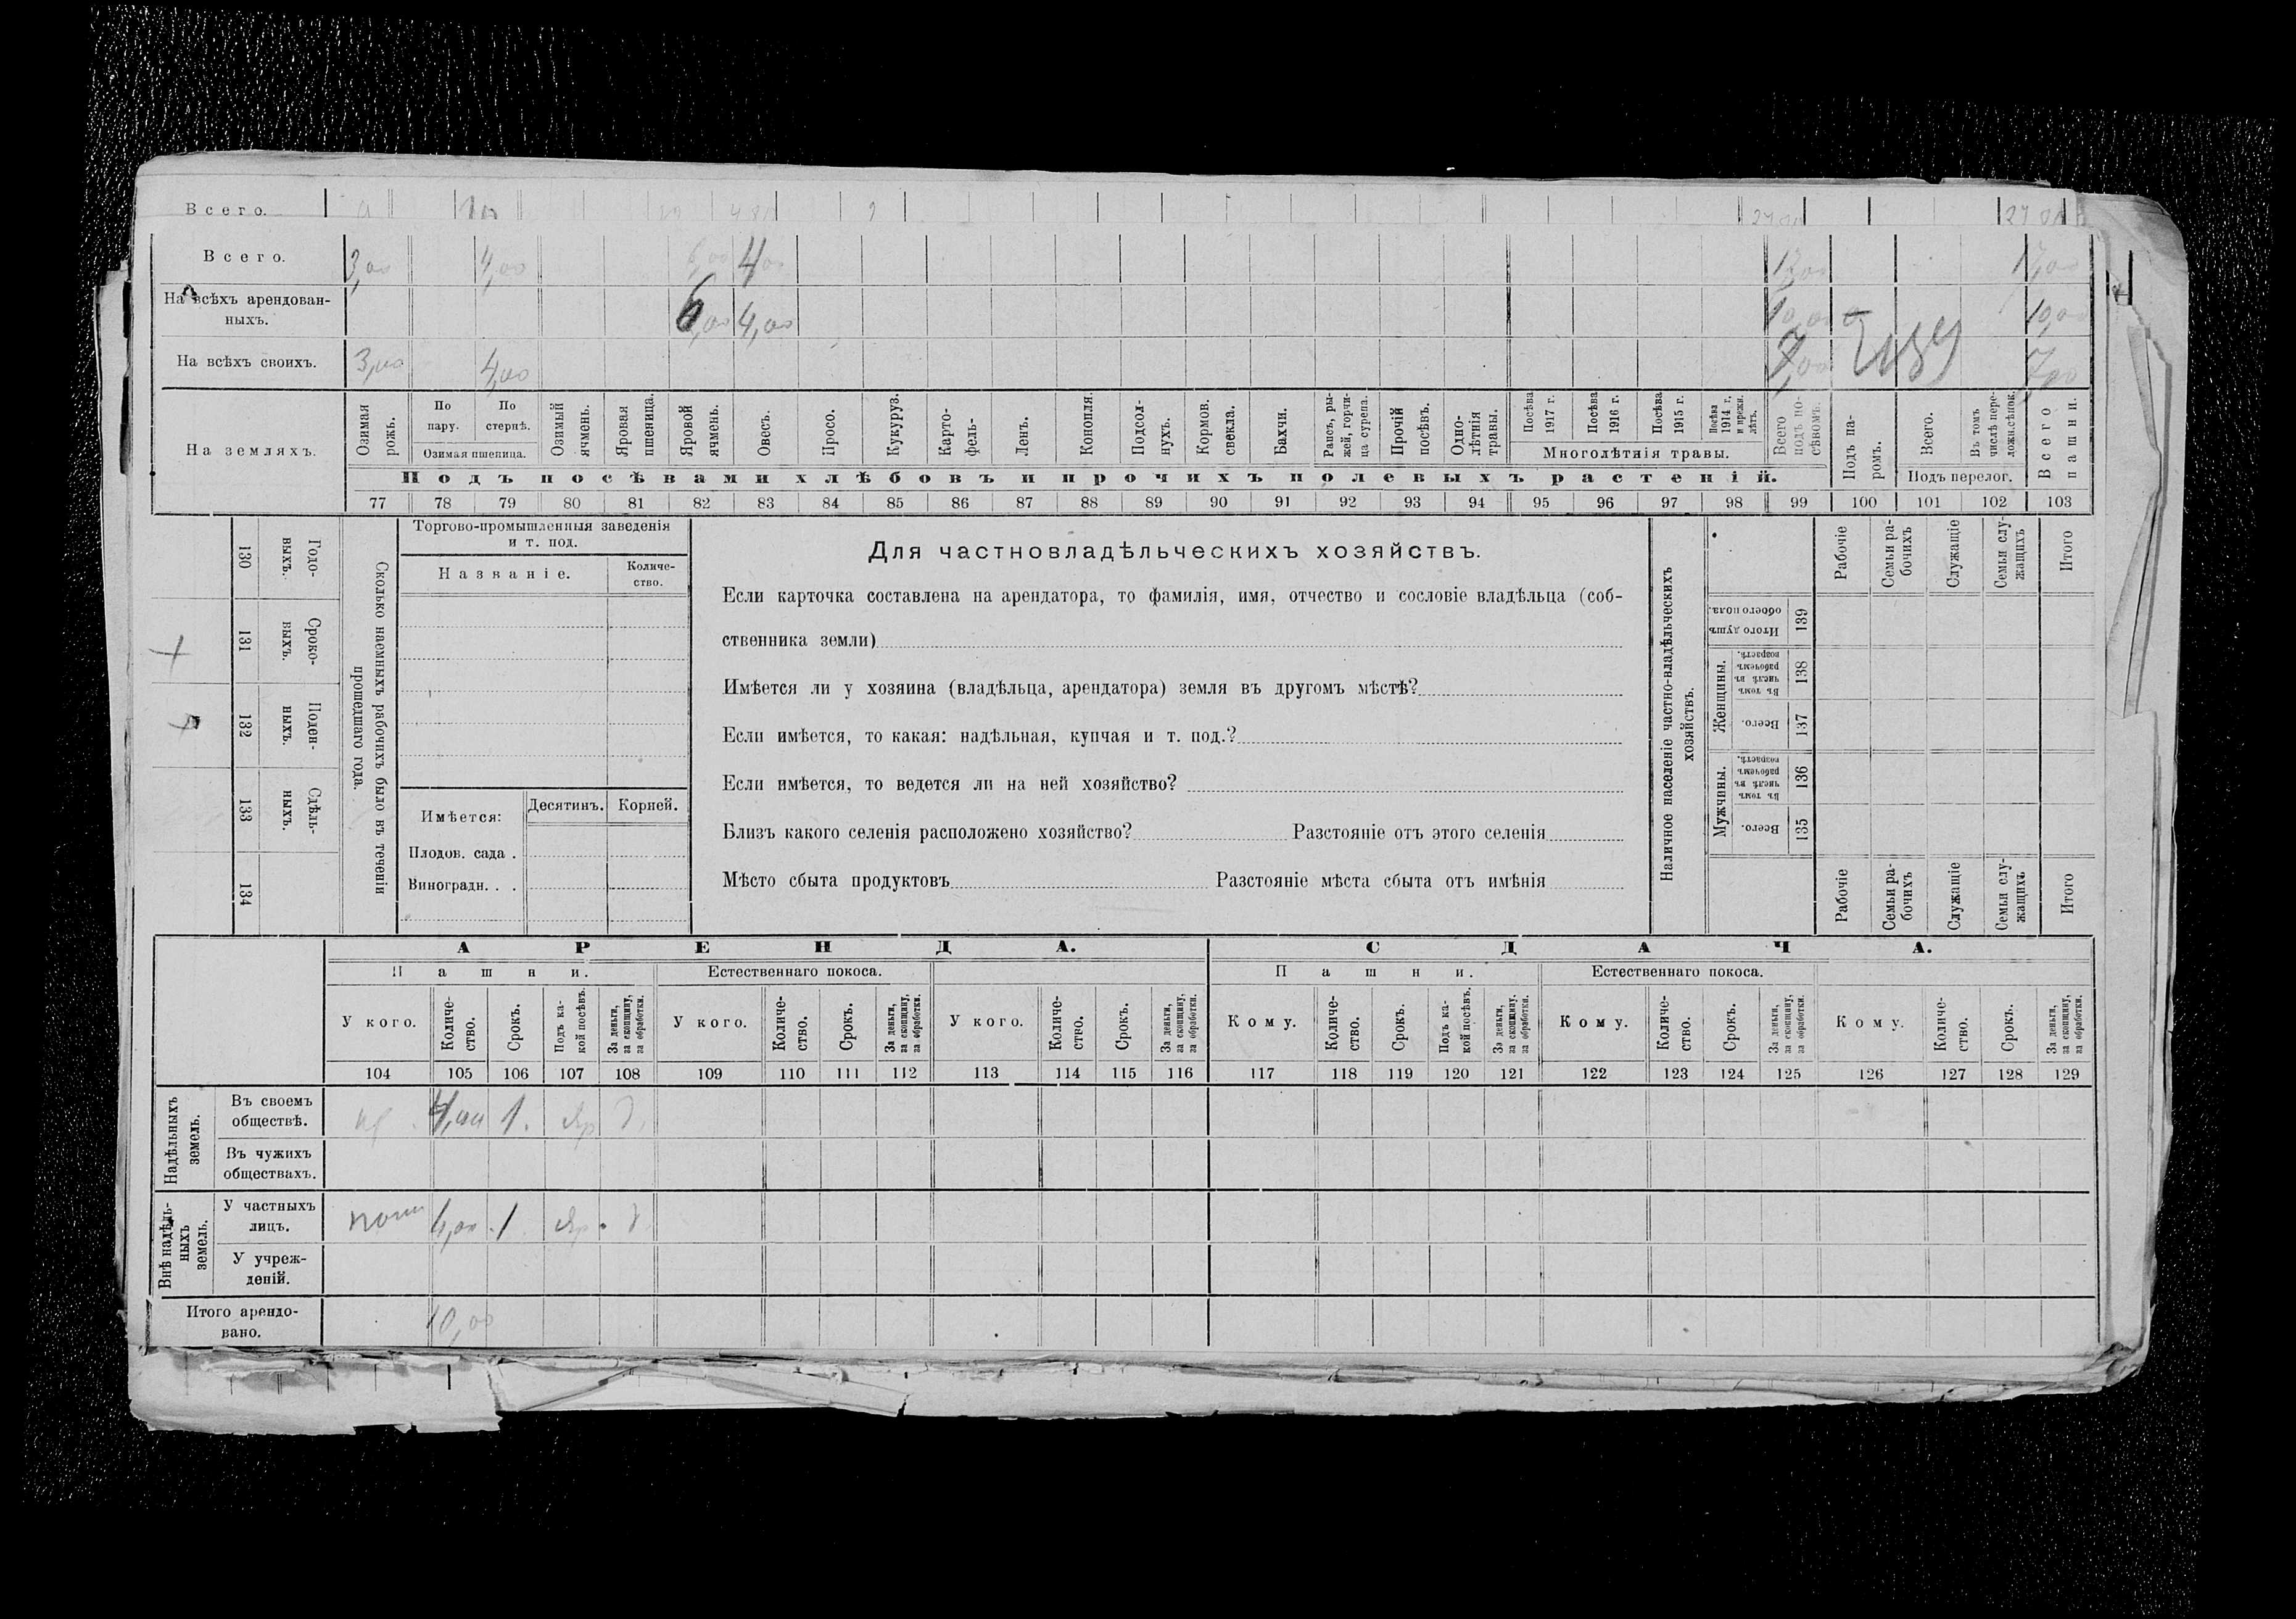 Всего.
Всего. 3,00 4,00 6,00 4,00 17,00 17,00
На всѣхъ арендован-
ныхъ. 6,00 4,00 10,00 10,00
На всѣхъ своихъ. 3,00 4,00 7,00 7,00
На земляхъ.
Озимая рожь.
По пару.
По стернѣ.
Озимая пшеница.
Озимый ячмень.
Яровая пшеница.
Яровой ячмень.
Овесъ.
Просо.
Кукуруз.
Карто-
фель-
Ленъ.
Конопля.
Подсол-
нухъ.
Кормов.
свекла.
Бахчи.
Рапсъ, ры-
жей, горчи-
ца сурепа.
Прочій
посѣвъ.
Одно-
лѣтнія
травы.
Посѣва
1917 г.
Посѣва
1916 г.
Посѣва
1915 г.
Посѣва
1914 г.
и прежн.
лѣтъ.
Многолѣтнія травы.
Всего
подъ по-
сѣвомъ.
Подъ па-
ромъ.
Всего.
Въ томъ
числѣ пере-
ложн.сѣнок.
Подъ перелог.
Всего
пашни.
Подъ посѣвами хлѣбовъ и прочихъ полевыхъ растеній.
77 78 79 80 81 82 83 84 85 86 87 88 89 90 91 92 93 94 95 96 97 98 99 100 101 102 103
130 Годо-
выхъ.
131 Сроко-
выхъ.
132 Поден-
ныхъ.
133 Сдѣль-
ныхъ.
134
Сколько наемныхъ рабочихъ было въ теченіи
прошедшаго года.
Торгово-промышленныя заведенія
и т. под.
Названіе.
Количе-
ство.
Имѣется:
Десятинъ. Корней.
Плодов. сада .
Виноградн. . .
Для частновладѣльческихъ хозяйствъ.
Если карточка составлена на арендатора, то фамилія, имя, отчество и сословіе владѣльца (соб-
ственника земли)
Имѣется ли у хозяина (владѣльца, арендатора) земля въ другомъ мѣстѣ?
Если имѣется, то какая: надѣльная, купчая и т. под.?
Если имѣется, то ведется ли на ней хозяйство?
Близъ какого селенія расположено хозяйство? Разстояніе отъ этого селенія
Мѣсто сбыта продуктовъ Разстояніе мѣста сбыта отъ имѣнія
Наличное населеніе частно-владѣльческихъ
хозяйствъ.
Рабочіе
Семьи ра-
бочихъ
Служащіе
Семьи слу-
жащихъ
Итого
Итого душъ
обоего пола.
139
Женщины.
Въ томъ
числѣ въ
рабочемъ
возрастѣ.
138
Всего.
137
Мужчины.
Въ томъ
числѣ въ
рабочемъ
возрастѣ.
136
Всего.
135
Рабочіе
Семьи ра-
бочихъ
Служащіе
Семьи слу-
жащихъ
Итого
АРЕНДА. СДАЧА.
Пашни. Естественнаго покоса. Пашни. Естественнаго покоса.
У кого.
Количе-
ство.
Срокъ.
Подъ ка-
кой посѣвъ.
За деньги,
за скопщину,
за обработки.
У кого.
Количе-
ство.
Срокъ.
За деньги,
за скопщину,
за обработки.
У кого.
Количе-
ство.
Срокъ.
За деньги,
за скопщину,
за обработки.
Кому.
Количе-
ство.
Срокъ.
Подъ ка-
кой посѣвъ.
За деньги,
за скопщину,
за обработки.
Кому.
Количе-
ство.
Срокъ.
За деньги,
за скопщину,
за обработки.
Кому.
Количе-
ство.
Срокъ.
За деньги,
за скопщину,
за обработки.
104 105 106 107 108 109 110 111 112 113 114 115 116 117 118 119 120 121 122 123 124 125 126 127 128 129
Надѣльныхъ
земель.
Въ своемъ
обществѣ. 1. яр
Въ чужихъ
обществахъ.
Внѣ надѣль-
ныхъ
земель.
У частныхъ
лицъ. 1 яр.
У учреж-
деній.
Итого арендо-
вано. 10,00